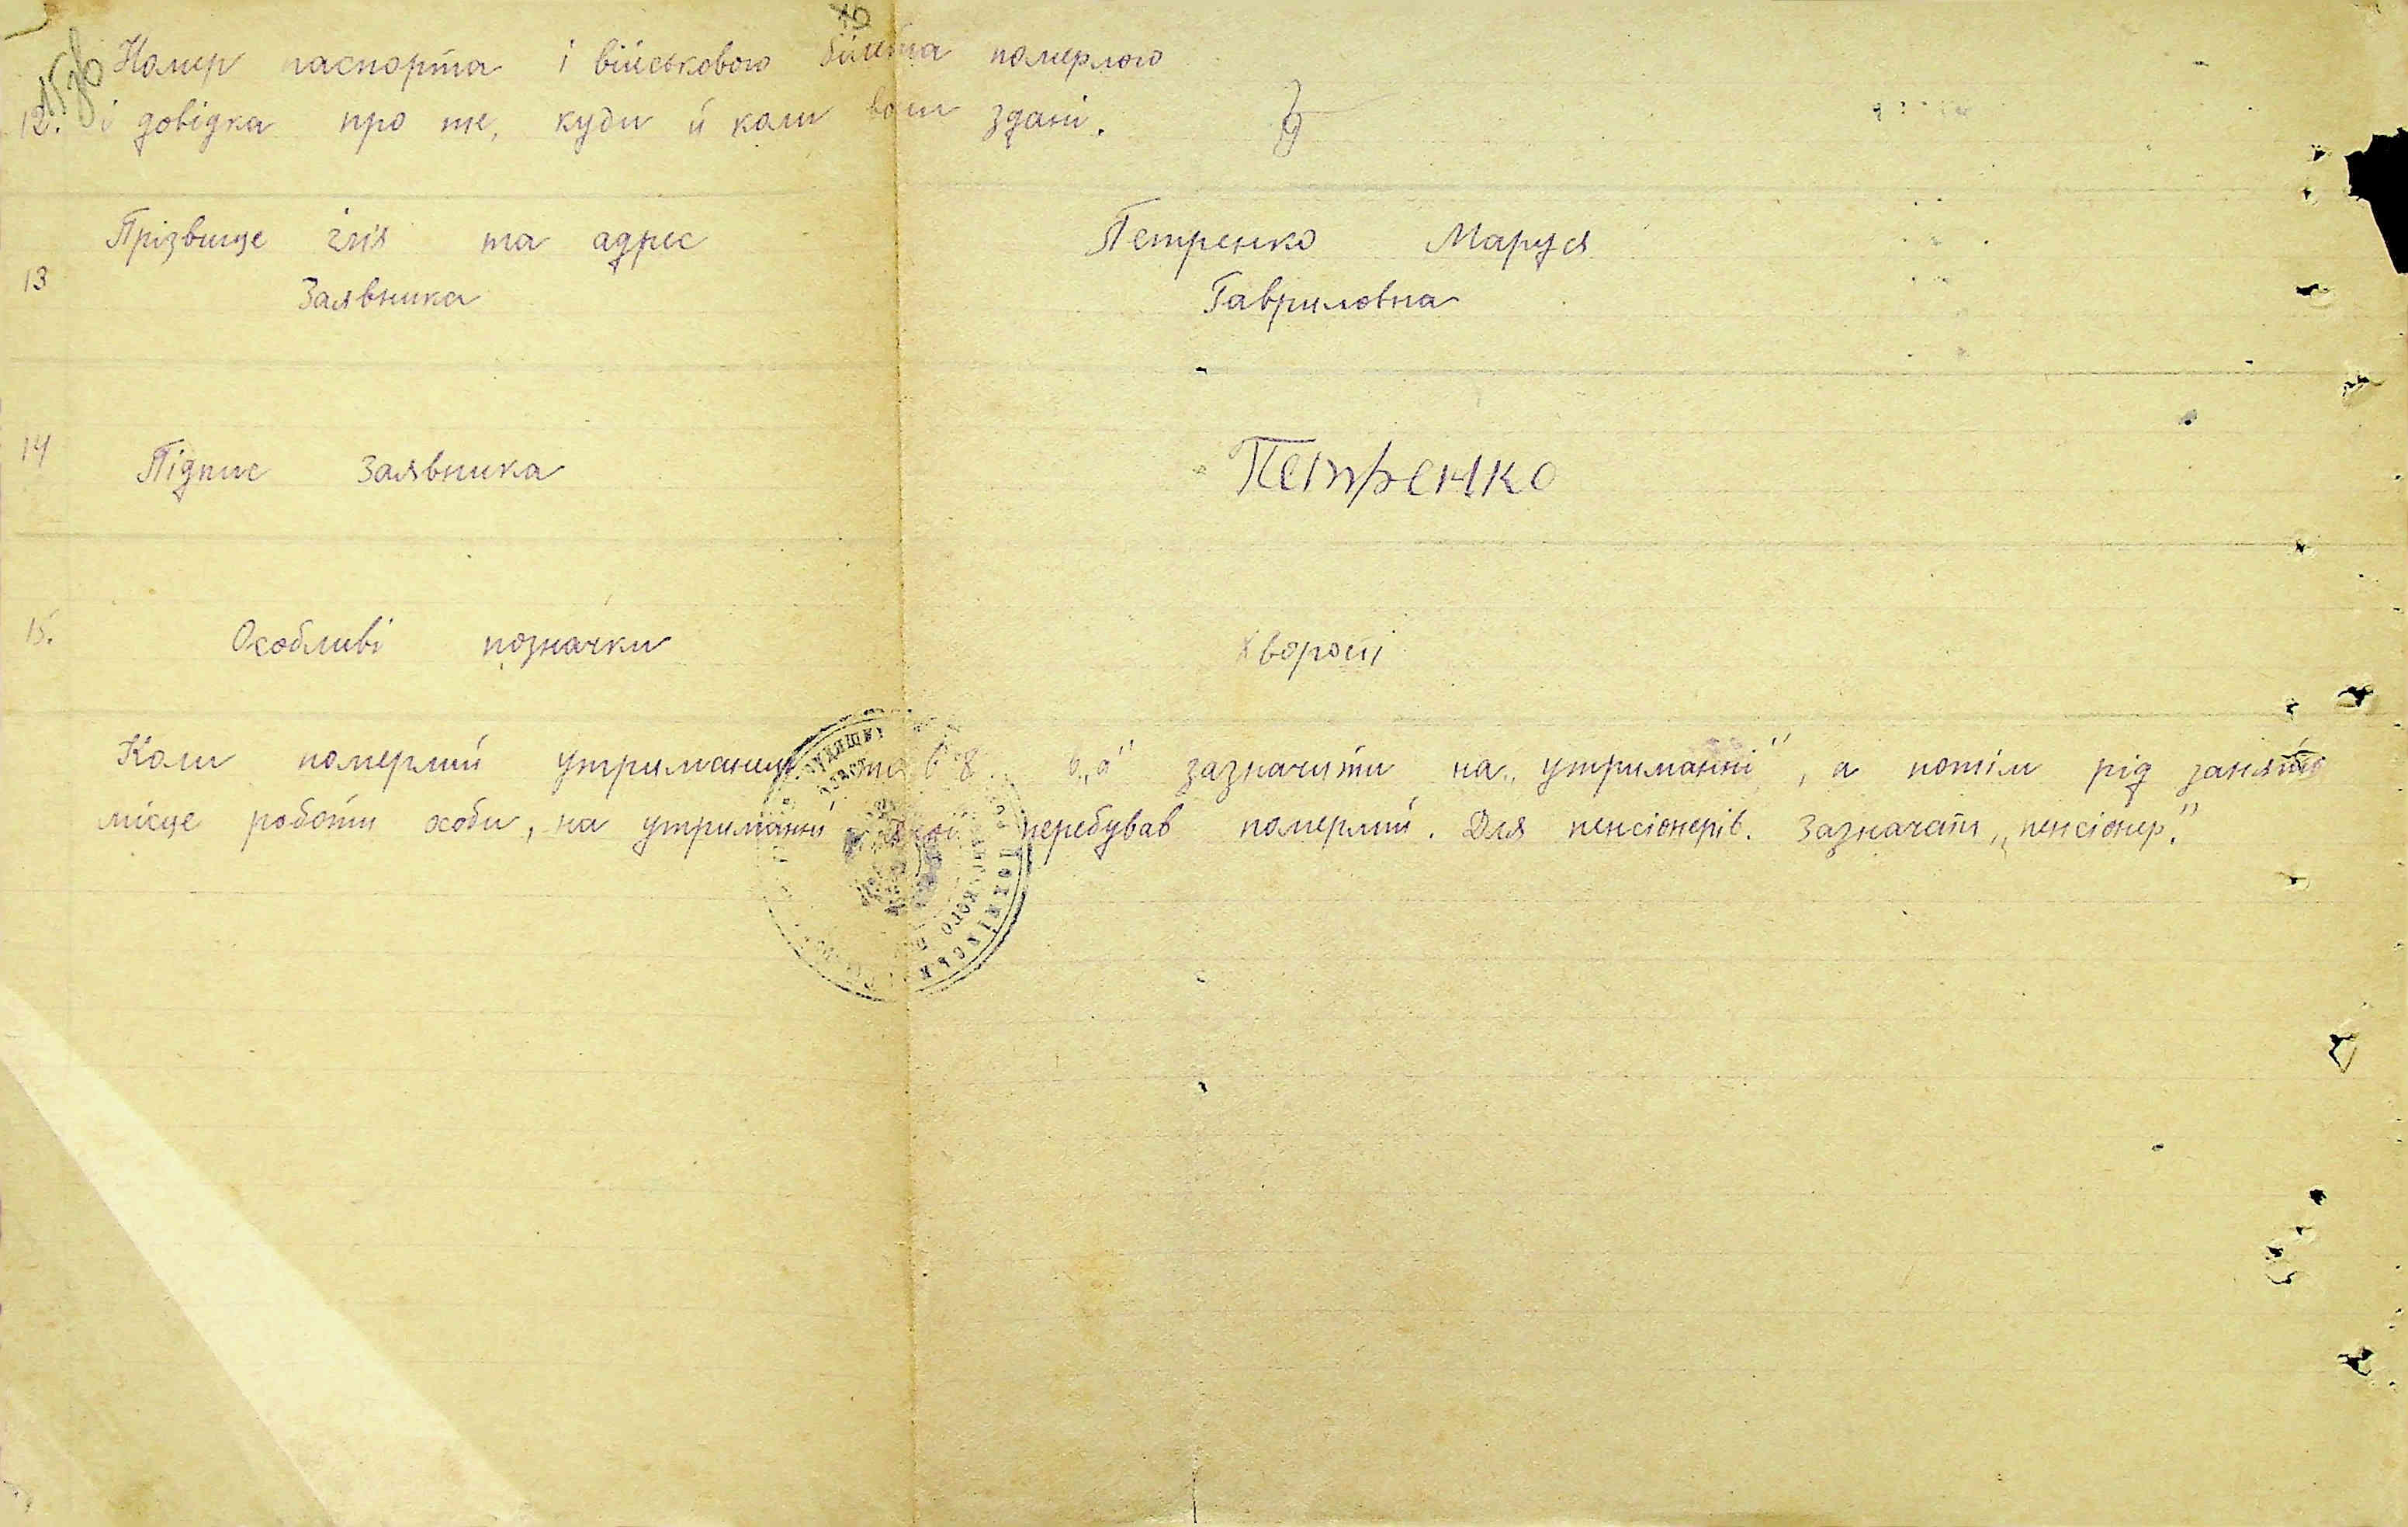 Номер паспорта і військового білета померлого
12. і довідка про те, куди й коли вони здані.
Прізвище ім'я та адрес Петренко Маруся
13 Заявника Гавриловна
14 Підпис Заявника Петренко
15. Особливі позначки Хворокі
Коли померлий утриманець то в 8 в „а" зазначити на „утриманні", а потім рід заняття
місце роботи особи, на утриманні якої перебував померлий. Для пенсіонерів. Зазначати „пенсіонер."